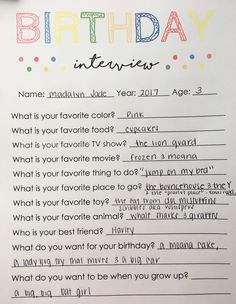 BIRTHDAY
interview
Name: Madalyn Jade Year: 2017 Age: 3
What is your favorite color? Pink
What is your favorite food? cupcakes
What is your favorite TV show? the lion guard
What is your favorite movie? Frozen & moana
What is your favorite thing to do? "jump on my bed"
What is your favorite place to go? the bouncehouse & the
& the "planet place"
What is your favorite toy? the cat from
scribbles aka whiskers
What is your favorite animal? whale sharks & giraffes
Who is your best friend? Harley
What do you want for your birthday? a moana cake,
a lady bug toy that moves & a big car
What do you want to be when you grow up?
a big, big bat girl